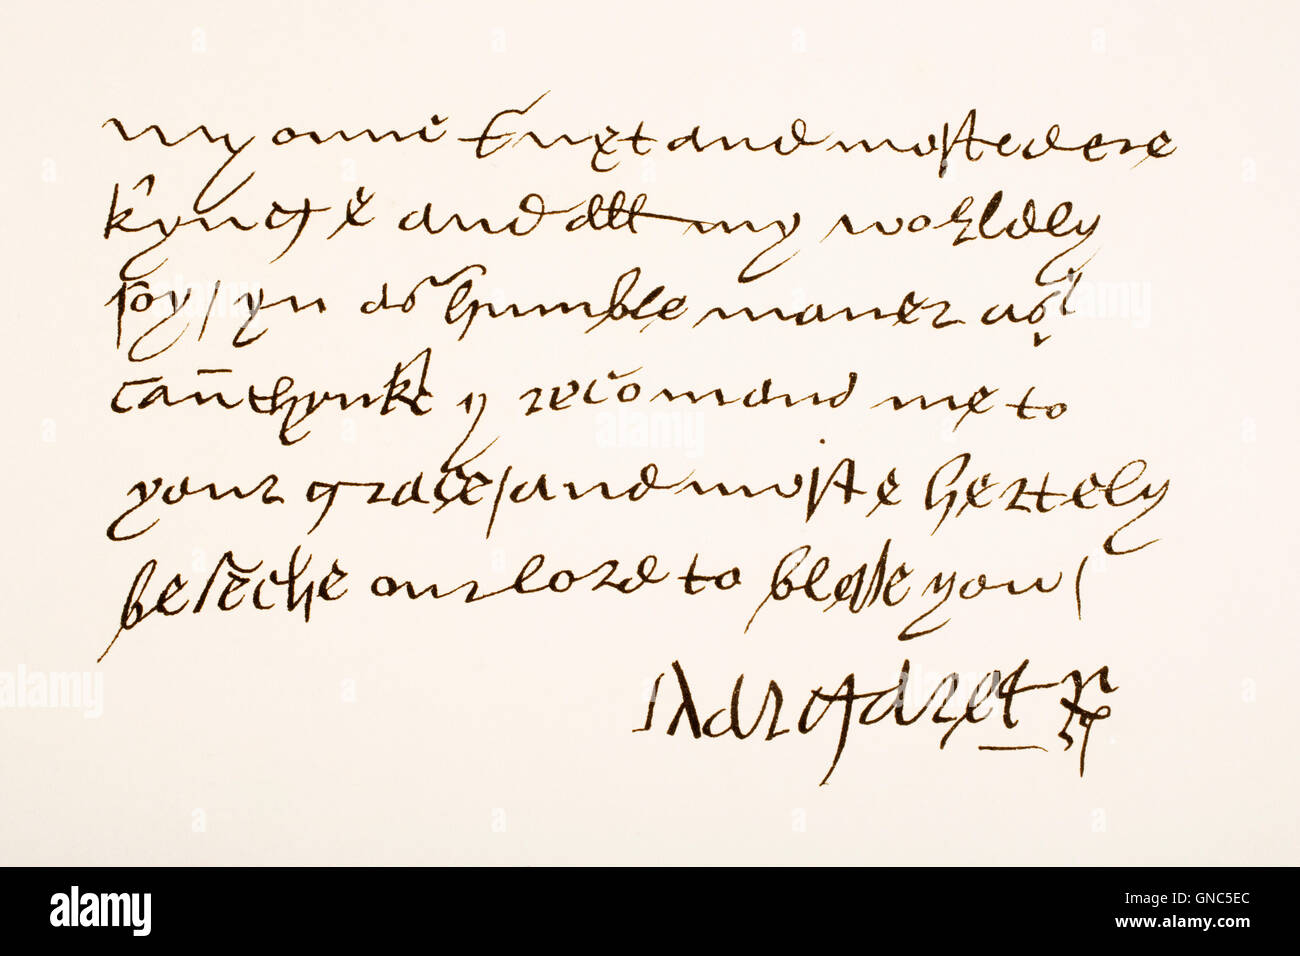 my oune suet and most dere
kynge and all my worldly
joy / yn as humble maner as I
can thynke y recomand me to
your grace / and moste hertely
beseche our lord to blesse you /
Margaret R
alamy
GNC5EC
www.alamy.com